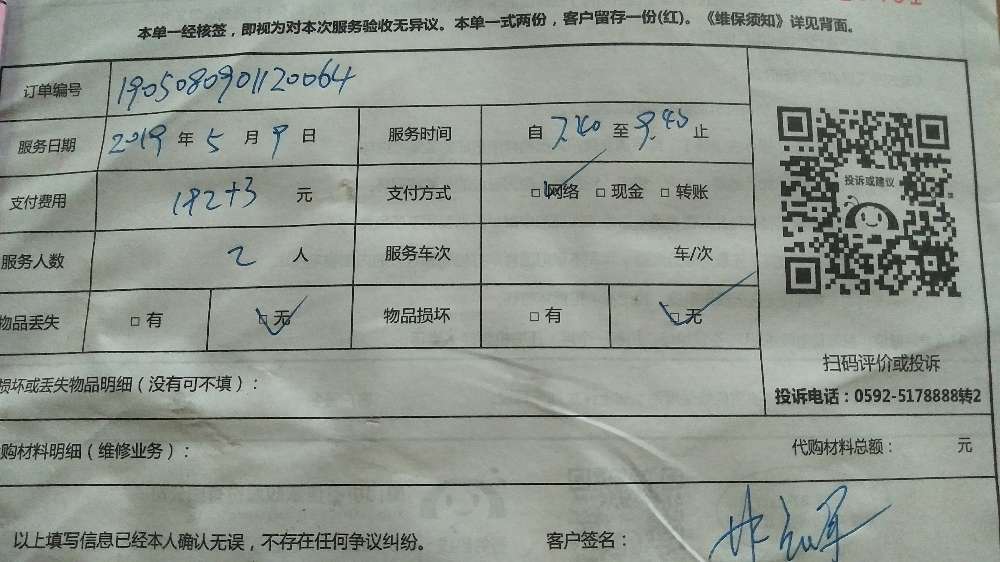 本单一经核签，即视为对本次服务验收无异议。本单一式两份，客户留存一份(红)。《维保须知》详见背面。
订单编号 1905080901120064
服务日期 2019 年 5 月 9 日 服务时间 自 7.40 至 9.40 止
支付费用 192+3 元 支付方式 □ 网络 □ 现金 □ 转账
服务人数 2 人 服务车次 车/次
物品丢失 □ 有 □ 无 物品损坏 □ 有 □ 无
投诉或建议
扫码评价或投诉
投诉电话：0592-5178888转2
损坏或丢失物品明细（没有可不填）：
购材料明细（维修业务）： 代购材料总额： 元
以上填写信息已经本人确认无误，不存在任何争议纠纷。 客户签名：